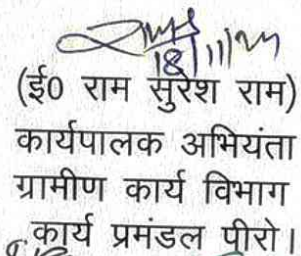 18/11/24
(ई0 राम सुरेश राम)
कार्यपालक अभियंता
ग्रामीण कार्य विभाग
कार्य प्रमंडल पीरो।